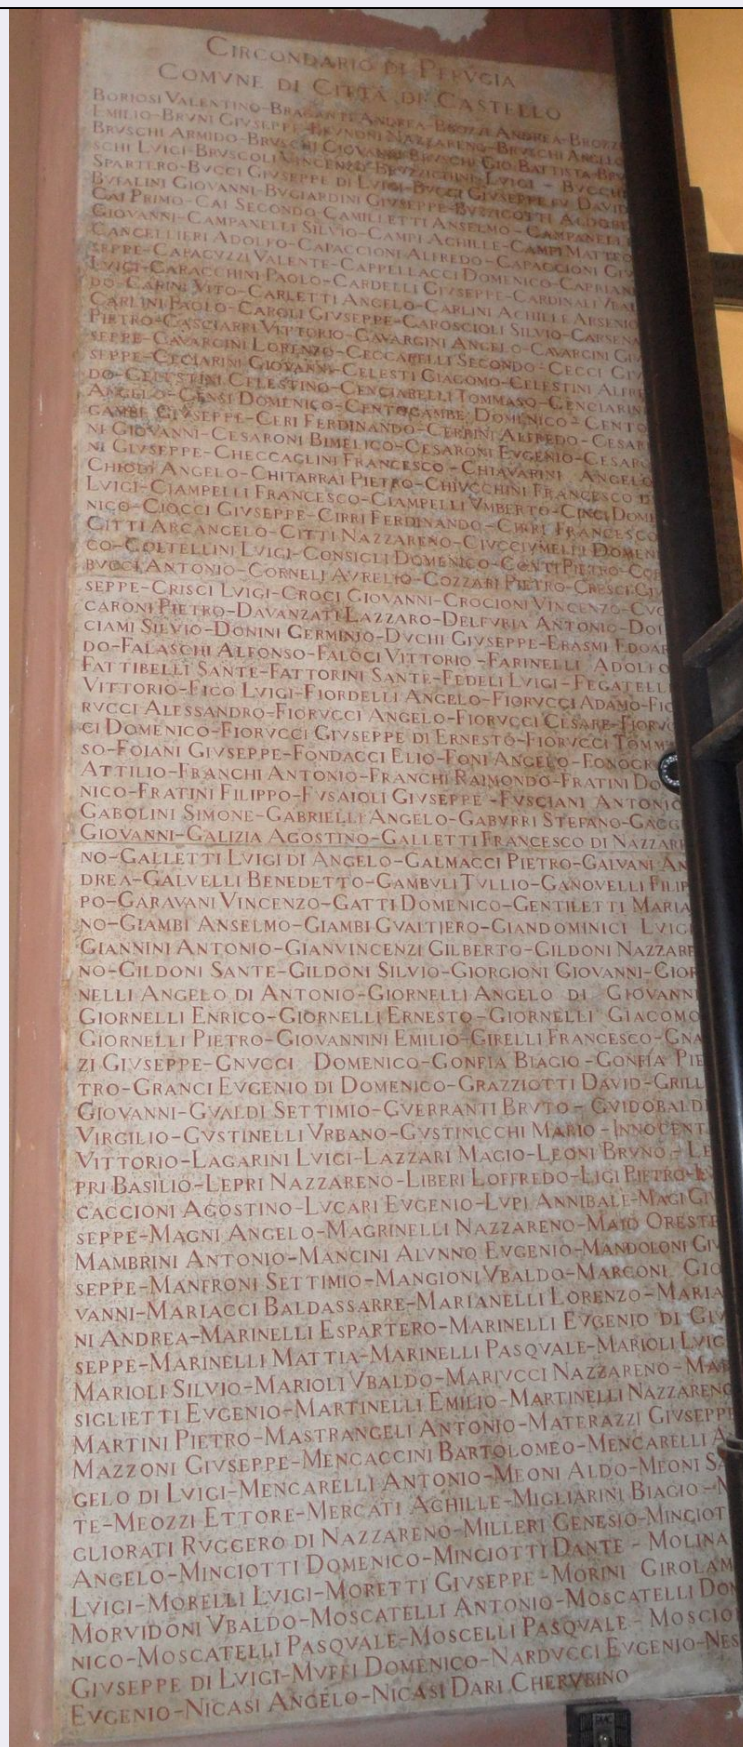 CIRCONDARIO DI PERVGIA
COMVNE DI CITTÀ DI CASTELLO
BORIOSI VALENTINO-BRAGANTI ANDREA-BROZZI ANDREA-BROZZI
EMILIO-BRVNI GIVSEPPE-BRVNONI NAZZARENO-BRVSCHI ANGELO
BRVSCHI ARMIDO-BRVSCHI GIOVANNI-BRVSCHI GIO BATTISTA-BRV
SCHI LVIGI-BRVSCOLI VINCENZO-BRVZZICHINI LVIGI-BVCCHI
SPARTERO-BVCCI GIVSEPPE DI LVIGI-BVCCI GIVSEPPE FV DAVID
BVFALINI GIOVANNI-BVGIARDINI GIVSEPPE-
CAI PRIMO-CAI SECONDO CAMILLETTI ANSELMO-CAMPANELLI
GIOVANNI-CAMPANELLI SILVIO-CAMPI ACHILLE-CAMPI MATTEO
CANCELLIERI ADOLFO-CAPACCIONI ALFREDO-CAPACCIONI GIV
SEPPE-CAPAGVZZI VALENTE-CAPPELLACCI DOMENICO-CAPRIANI
LVIGI-CARACCHINI PAOLO-CARDELLI GIVSEPPE-CARDINALI VBAL
DO-CARINI VITO-CARLETTI ANGELO-CARLINI ACHILLE ARSENIO
CARLINI PAOLO-CAROLI GIVSEPPE-CAROSCIOLI SILVIO-CARSENA
PIETRO-CASCIARRI VITTORIO-CAVARGINI ANGELO-CAVARGINI GIV
SEPPE-CAVARGINI LORENZO-CECCARELLI SECONDO-CECCI GIV
SEPPE-CECIARINI GIOVANNI-CELESTI GIACOMO-CELESTINI ALFRE
DO-CELESTINI CELESTINO-CENCIARELLI TOMMASO-CENCIARINI
ANGELO-CENSI DOMENICO-CENTOGAMBE DOMENICO-CENTO
GAMBE GIVSEPPE-CERI FERDINANDO-CERRINI ALFREDO-CESAR
NI GIOVANNI-CESARONI BIMELICO-CESARONI EVGENIO-CESARO
NI GIVSEPPE-CHECCAGLINI FRANCESCO-CHIAVARINI ANGELO
CHIODI ANGELO-CHITARRAI PIETRO-CHIVCCHINI FRANCESCO DI
LVIGI-CIAMPELLI FRANCESCO-CIAMPELLI VMBERTO-CINCI DOME
NICO-CIOCCI GIVSEPPE-CIRRI FERDINANDO-CIRRI FRANCESCO
CITTI ARCANGELO-CITTI NAZZARENO-CIVCCIVMELLI DOMENI
CO-COLTELLINI LVIGI-CONSIGLI DOMENICO-CONTI PIETRO-COR
BVCCI ANTONIO-CORNELI AVRELIO-COZZARI PIETRO-CRESCI GIV
SEPPE-CRISCI LVIGI-CROCI GIOVANNI-CROCIONI VINCENZO-CVC
CARONI PIETRO-DAVANZATI LAZZARO-DELFVRIA ANTONIO-DOL
CIAMI SILVIO-DONINI GERMINIO-DVCHI GIVSEPPE-ERASMI EDOAR
DO-FALASCHI ALFONSO-FALOCI VITTORIO-FARINELLI ADOLFO
FATTIBELLI SANTE-FATTORINI SANTE-FEDELI LVIGI-FEGATELLI
VITTORIO-FICO LVIGI-FIORDELLI ANGELO-FIORVCCI ADAMO-FIO
RVCCI ALESSANDRO-FIORVCCI ANGELO-FIORVCCI CESARE-FIORVC
CI DOMENICO-FIORVCCI GIVSEPPE DI ERNESTO-FIORVCCI TOMMA
SO-FOIANI GIVSEPPE-FONDACCI ELIO-FONI ANGELO-
ATTILIO-FRANCHI ANTONIO-FRANCHI RAIMONDO-FRATINI DO
NICO-FRATINI FILIPPO-FVSAIOLI GIVSEPPE-FVSCIANI ANTONIO
GABOLINI SIMONE-GABRIELLI ANGELO-GABVRRI STEFANO-GAGG
GIOVANNI-GALIZIA AGOSTINO-GALLETTI FRANCESCO DI NAZZARE
NO-GALLETTI LVIGI DI ANGELO-GALMACCI PIETRO-GALVANI AN
DREA-GALVELLI BENEDETTO-GAMBVLI TVLLIO-GANOVELLI FILIP
PO-GARAVANI VINCENZO-GATTI DOMENICO-GENTILETTI MARIA
NO-GIAMBI ANSELMO-GIAMBI GVALTIERO-GIANDOMINICI LVIGI
GIANNINI ANTONIO-GIANVINCENZI GILBERTO-GILDONI NAZZARE
NO-GILDONI SANTE-GILDONI SILVIO-GIORGIONI GIOVANNI-GIOR
NELLI ANGELO DI ANTONIO-GIORNELLI ANGELO DI GIOVANNI
GIORNELLI ENRICO-GIORNELLI ERNESTO-GIORNELLI GIACOMO
GIORNELLI PIETRO-GIOVANNINI EMILIO-GIRELLI FRANCESCO-GNA
ZI GIVSEPPE-GNVCCI DOMENICO-GONFIA BIAGIO-GONFIA PIE
TRO-GRANCI EVGENIO DI DOMENICO-GRAZZIOTTI DAVID-GRILL
GIOVANNI-GVALDI SETTIMIO-GVERRANTI BRVTO-GVIDOBALDI
VIRGILIO-GVSTINELLI VRBANO-GVSTINICCHI MARIO-INNOCENT
VITTORIO-LAGARINI LVIGI-LAZZARI MAGIO-LEONI BRVNO-LE
PRI BASILIO-LEPRI NAZZARENO-LIBERI LOFFREDO-LIGI PIETRO-L
CACCIONI AGOSTINO-LVCARI EVGENIO-LVPI ANNIBALE-MAGI GIV
SEPPE-MAGNI ANGELO-MAGRINELLI NAZZARENO-MAIO ORESTE
MAMBRINI ANTONIO-MANCINI ALVNNO EVGENIO-MANDOLONI GIV
SEPPE-MANFRONI SETTIMIO-MANGIONI VBALDO-MARCONI GIO
VANNI-MARIACCI BALDASSARRE-MARIANELLI LORENZO-MARIA
NI ANDREA-MARINELLI ESPARTERO-MARINELLI EVGENIO DI GIV
SEPPE-MARINELLI MATTIA-MARINELLI PASQVALE-MARIOLI LVIGI
MARIOLI SILVIO-MARIOLI VBALDO-MARIVCCI NAZZARENO-MAR
SIGLIETTI EVGENIO-MARTINELLI EMILIO-MARTINELLI NAZZARENO
MARTINI PIETRO-MASTRANGELI ANTONIO-MATERAZZI GIVSEPPE
MAZZONI GIVSEPPE-MENCACCINI BARTOLOMEO-MENCARELLI AN
GELO DI LVIGI-MENCARELLI ANTONIO-MEONI ALDO-MEONI SA
TE-MEOZZI ETTORE-MERCATI ACHILLE-MIGLIARINI BIAGIO-M
GLIORATI RVGGERO DI NAZZARENO-MILLERI GENESIO-MINCIOT
ANGELO-MINCIOTTI DOMENICO-MINCIOTTI DANTE-MOLINA
LVIGI-MORELLI LVIGI-MORETTI GIVSEPPE-MORINI GIROLAM
MORVIDONI VBALDO-MOSCATELLI ANTONIO-MOSCATELLI DOM
NICO-MOSCATELLI PASQVALE-MOSCELLI PASQVALE-MOSCIO
GIVSEPPE DI LVIGI-MVFFI DOMENICO-NARDVCCI EVGENIO-NES
EVGENIO-NICASI ANGELO-NICASI DARI CHERVBINO